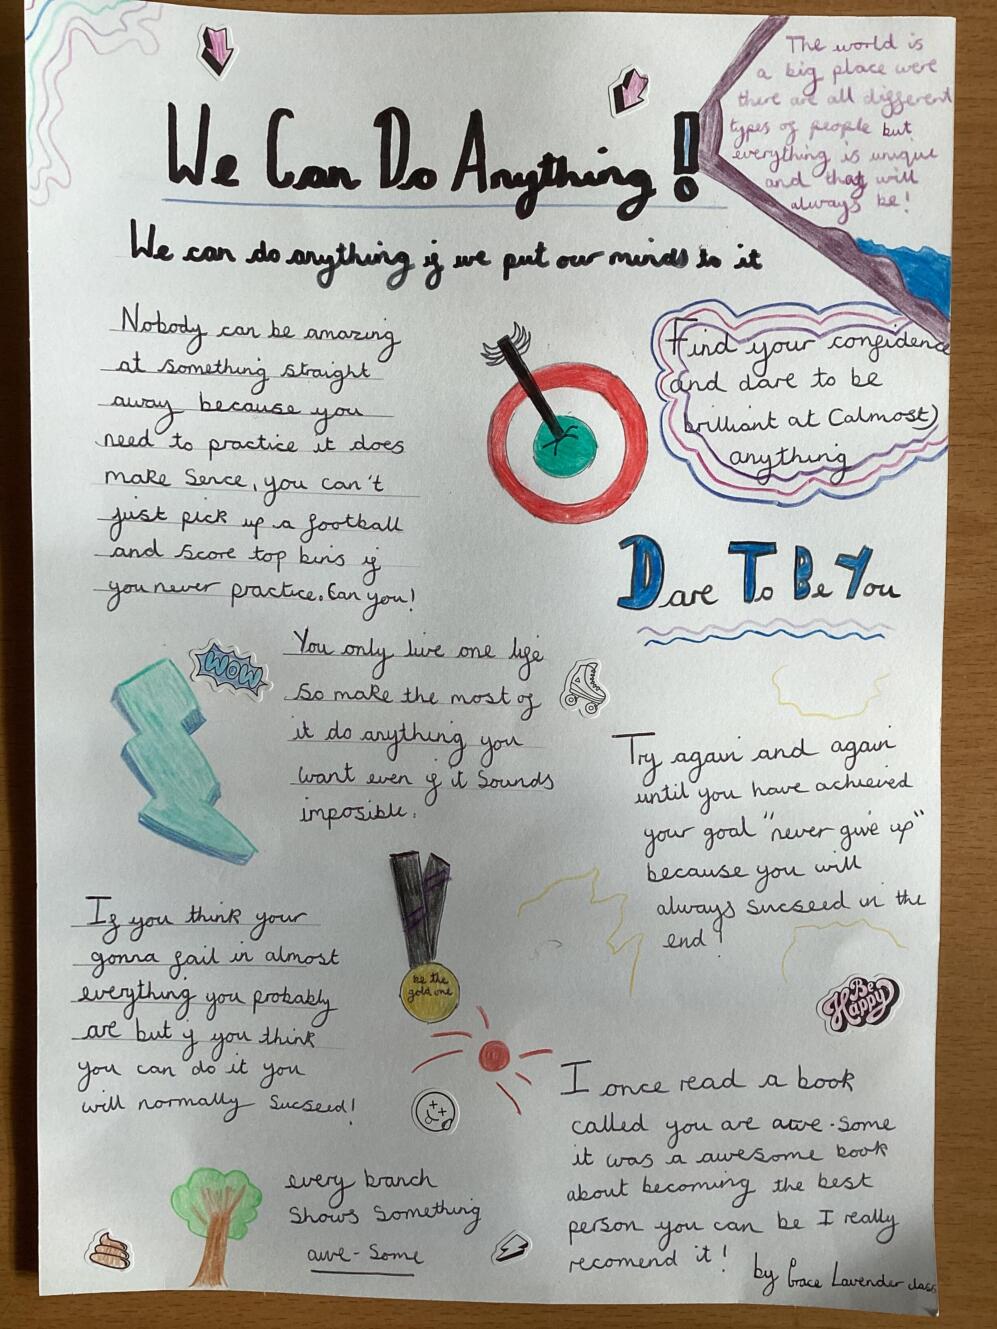 The world is
a big place were
there are all different
types of people but
everything is unique
and that will
always be!
We Can Do Anything!
We can do anything if we put our minds to it
Nobody can be amazing
at something straight
away because you
need to practice it does
make sence, you can't
just pick up a football
and score top bins if
you never practice. Can you!
Find your confidence
and dare to be
brilliant at (almost)
anything
Dare To Be You
WOW
You only live one life
so make the most of
it do anything you
want even if it sounds
imposible.
Try again and again
until you have achieved
your goal "never give up"
because you will
always sucseed in the
end!
If you think your
gonna fail in almost
everything you probably
are but if you think
you can do it you
will normally sucseed!
be the
gold one
Be
Happy
I once read a book
called you are awe-some
it was a awesome book
about becoming the best
person you can be I really
recomend it!
every branch
shows something
awe-some
by Grace Lavender class